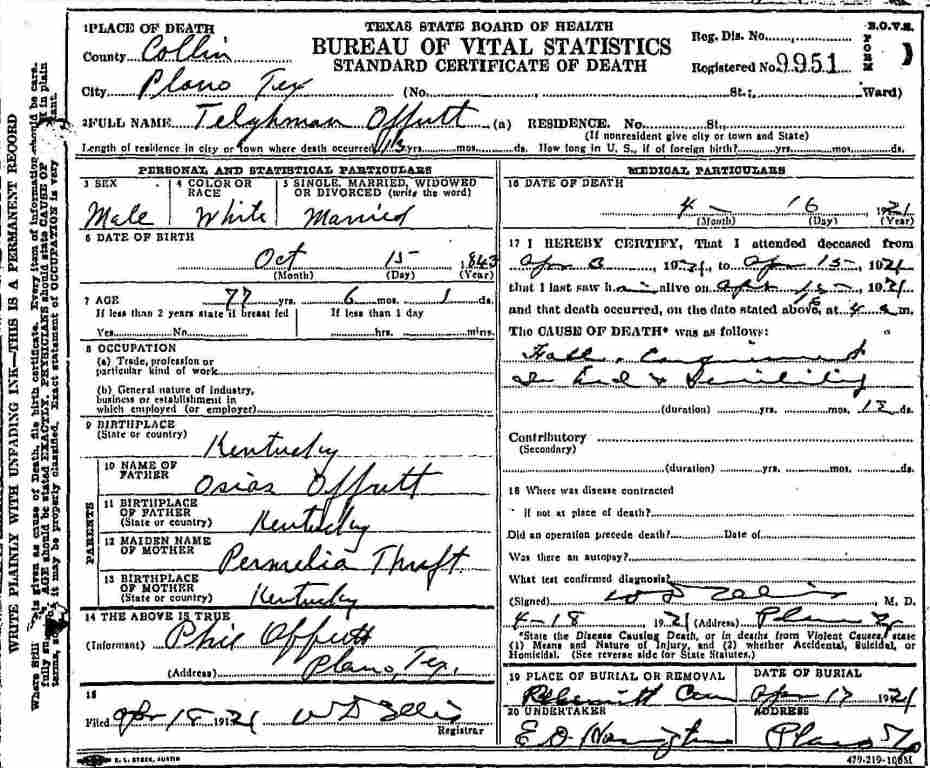 1 PLACE OF DEATH
County Collin
TEXAS STATE BOARD OF HEALTH
BUREAU OF VITAL STATISTICS
STANDARD CERTIFICATE OF DEATH
Reg. Dis. No.
Registered No. 9951
B.O.V.S.
FORM
1
City Plano Tex (No. , St.; Ward)
2 FULL NAME Telghman Offutt (a) RESIDENCE. No. St.,
(If nonresident give city or town and State)
Length of residence in city or town where death occurred 13 yrs. mos. ds. How long in U. S., if of foreign birth? yrs. mos. ds.
PERSONAL AND STATISTICAL PARTICULARS
3 SEX
Male
4 COLOR OR RACE
White
5 SINGLE, MARRIED, WIDOWED OR DIVORCED (write the word)
Married
6 DATE OF BIRTH
Oct 15 1843
(Month) (Day) (Year)
7 AGE 77 yrs. 6 mos. 1 ds.
If less than 2 years state if breast fed
Yes No
If less than 1 day
hrs. mins.
8 OCCUPATION
(a) Trade, profession or
particular kind of work
(b) General nature of industry,
business or establishment in
which employed (or employer)
9 BIRTHPLACE
(State or country) Kentucky
PARENTS
10 NAME OF FATHER Osias Offutt
11 BIRTHPLACE OF FATHER
(State or country) Kentucky
12 MAIDEN NAME OF MOTHER Permelia Thrift
13 BIRTHPLACE OF MOTHER
(State or country) Kentucky
14 THE ABOVE IS TRUE
(Informant) Phil Offutt
(Address) Plano, Tex.
15
Filed Apr 18 1921 W D Ellis
Registrar
MEDICAL PARTICULARS
16 DATE OF DEATH
4 - 16 1921
(Month) (Day) (Year)
17 I HEREBY CERTIFY, That I attended deceased from
Apr 3, 1921, to Apr 15, 1921
that I last saw him alive on Apr 15, 1921
and that death occurred, on the date stated above, at 4 a m.
The CAUSE OF DEATH* was as follows:
Fall, Confinement
In bed & Senility
(duration) yrs. mos. 12 ds.
Contributory
(Secondary)
(duration) yrs. mos. ds.
18 Where was disease contracted
if not at place of death?
Did an operation precede death? Date of
Was there an autopsy?
What test confirmed diagnosis?
(Signed) W D Ellis M. D.
4-18 1921 (Address) Plano Tex
*State the Disease Causing Death, or in deaths from Violent Causes, state
(1) Means and Nature of Injury, and (2) whether Accidental, Suicidal, or
Homicidal. (See reverse side for State Statutes.)
19 PLACE OF BURIAL OR REMOVAL
Cem
DATE OF BURIAL
Apr 17 1921
20 UNDERTAKER
E D Harrington
ADDRESS
Plano Tex
479-219-100M
WRITE PLAINLY WITH UNFADING INK—THIS IS A PERMANENT RECORD